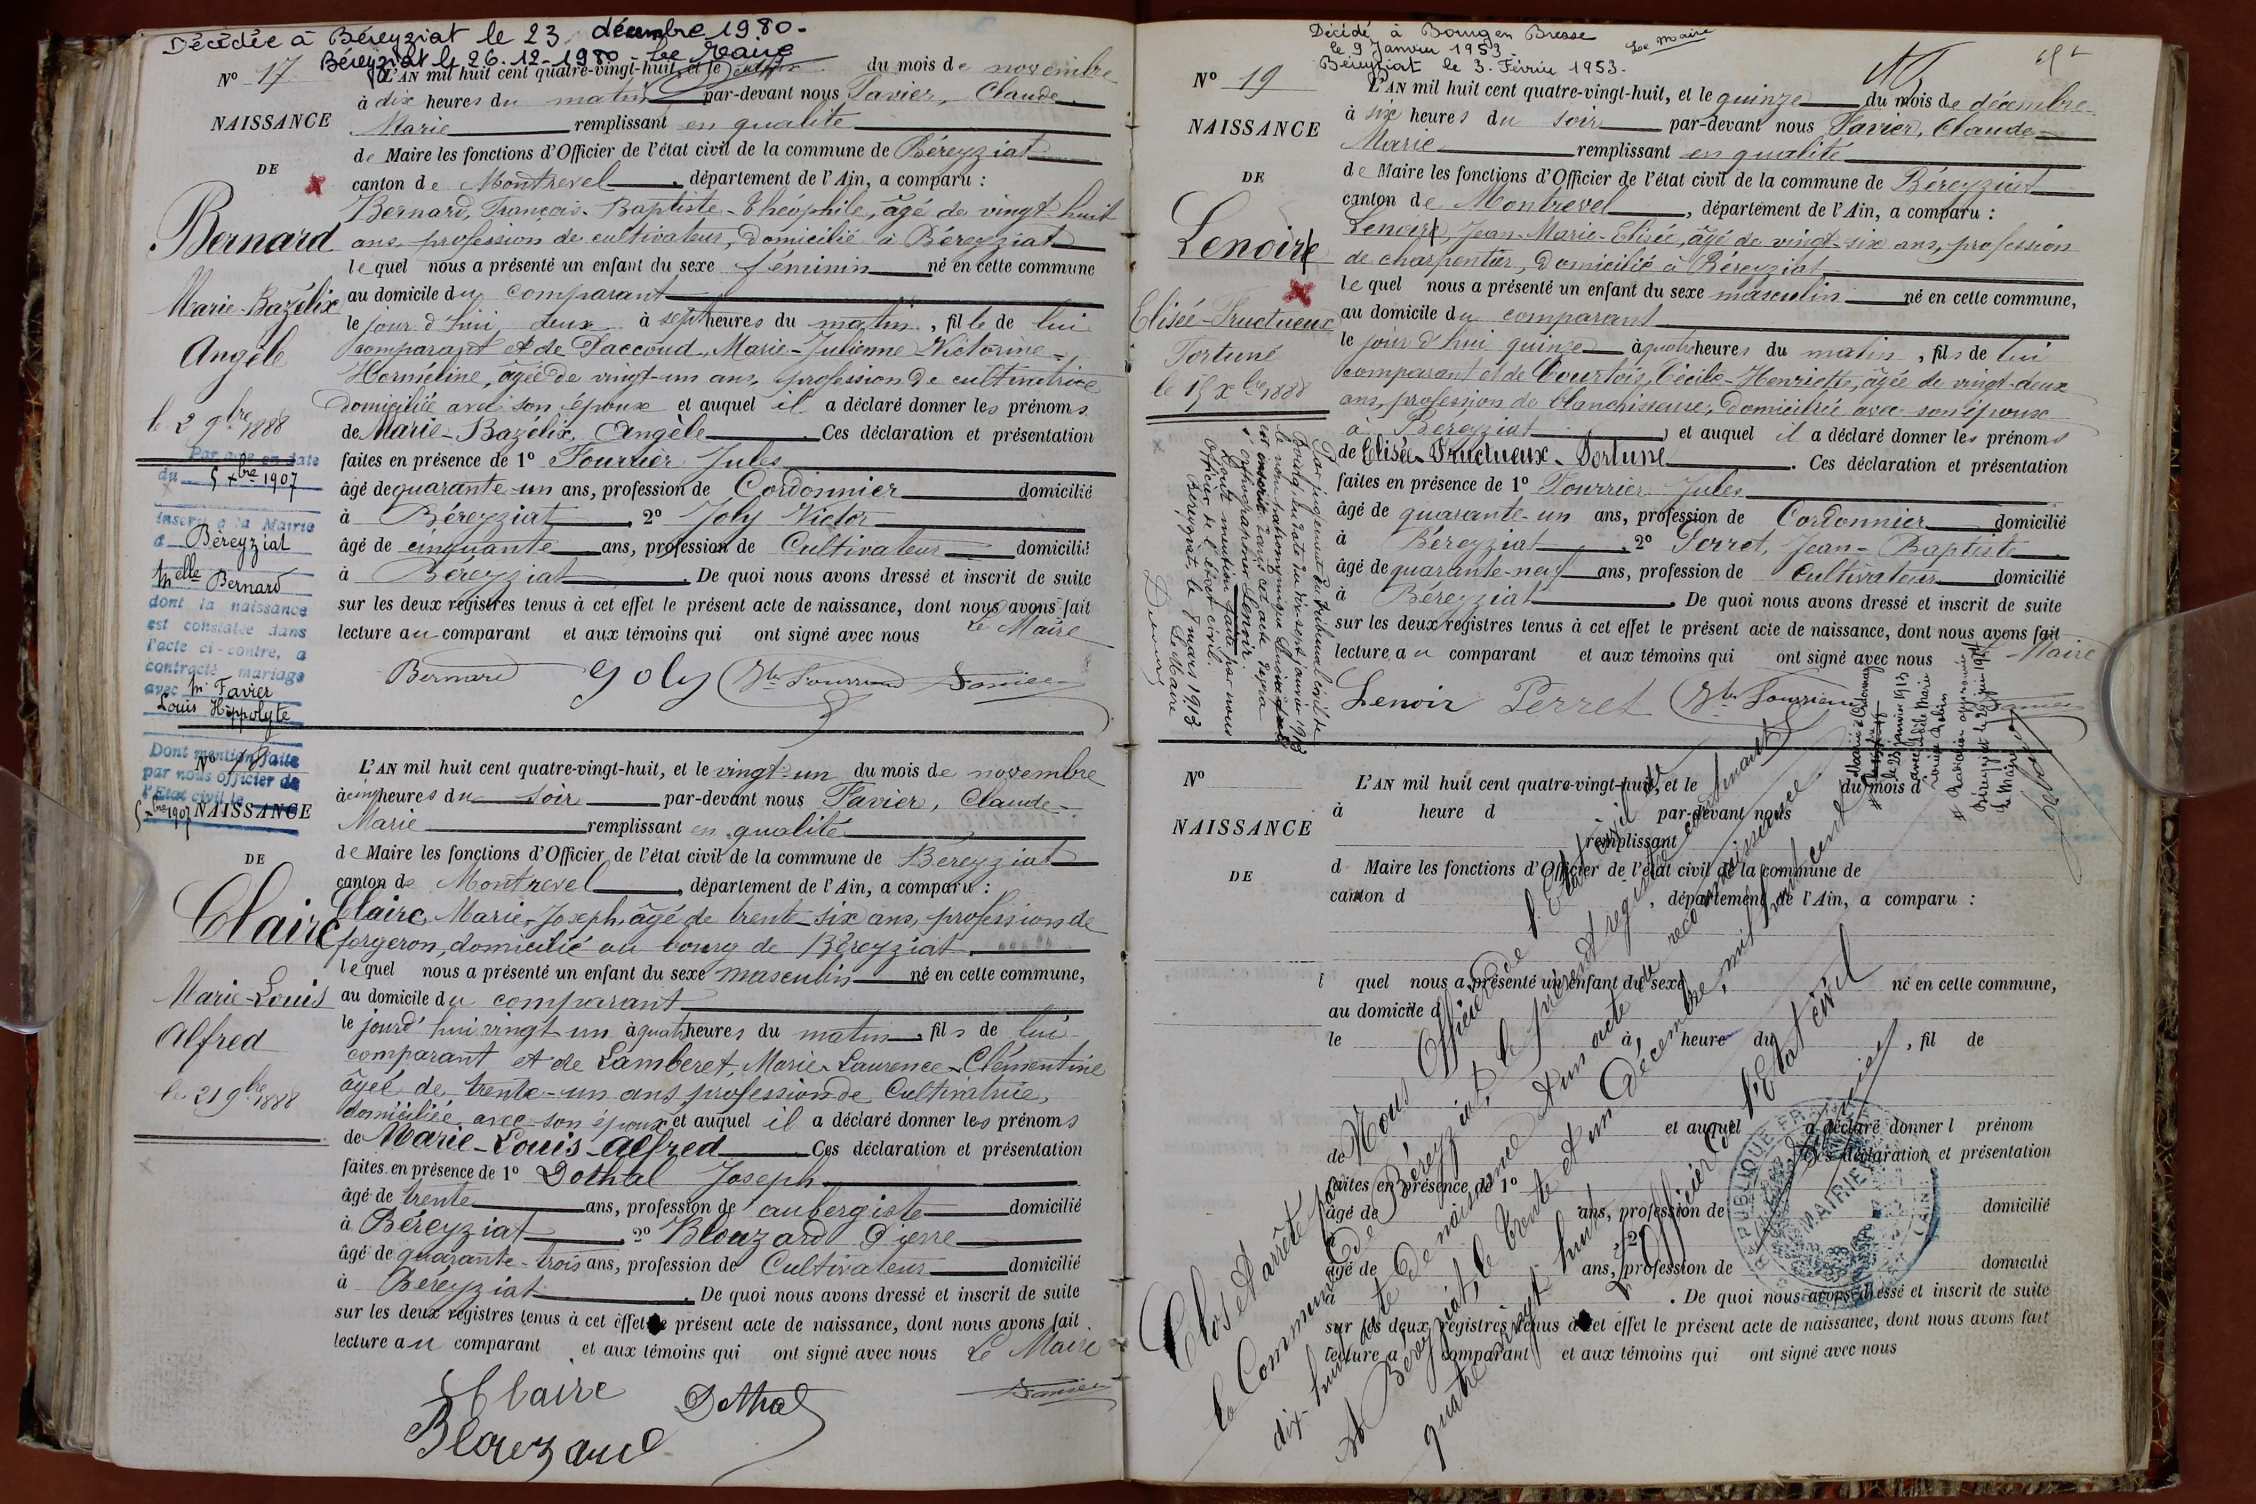 Décédée à Béreyziat le 23 décembre 1980.
Béreyziat le 26.12.1980 Le Maire
No 17
NAISSANCE
DE
Bernard
Marie-Bazélix
Angèle
le 2 9bre 1888
Par acte en date
du 5 xbre 1907
inscrit à la Mairie
d Béreyziat
Melle Bernard
dont la naissance
est constatée dans
l'acte ci-contre, a
contracté mariage
avec Mr Favier
Louis Hippolyte
Dont mention faite
par nous officier de
l'Etat civil le
5 xbre 1907
L'AN mil huit cent quatre-vingt-huit, et le deux du mois de novembre
à dix heures du matin par-devant nous Favier, Claude-
Marie remplissant en qualité
de Maire les fonctions d'Officier de l'état civil de la commune de Béreyziat
canton de Montrevel, département de l'Ain, a comparu :
Bernard, François-Baptiste-Théophile, âgé de vingt-huit
ans, profession de cultivateur, domicilié à Béreyziat
lequel nous a présenté un enfant du sexe féminin né en cette commune
au domicile du comparant
le jour d'hui deux à sept heures du matin, fille de lui
comparant et de Paccoud, Marie-Julienne-Victorine-
Herméline, âgée de vingt-un ans, profession de cultivatrice
domiciliée avec son époux et auquel il a déclaré donner les prénoms
de Marie-Bazélix, Angèle. Ces déclaration et présentation
faites en présence de 1o Fourrier Jules
âgé de quarante-un ans, profession de Cordonnier domicilié
à Béreyziat, 2o Joly Victor
âgé de cinquante ans, profession de Cultivateur domicilié
à Béreyziat. De quoi nous avons dressé et inscrit de suite
sur les deux registres tenus à cet effet le présent acte de naissance, dont nous avons fait
lecture au comparant et aux témoins qui ont signé avec nous Le Maire
Bernard Joly Fourrier Favier
No 18
NAISSANCE
DE
Claire
Marie-Louis
Alfred
le 21 9bre 1888
L'AN mil huit cent quatre-vingt-huit, et le vingt-un du mois de novembre
à cinq heures du soir par-devant nous Favier, Claude-
Marie remplissant en qualité
de Maire les fonctions d'Officier de l'état civil de la commune de Béreyziat
canton de Montrevel, département de l'Ain, a comparu :
Claire, Marie-Joseph, âgé de trente-six ans, profession de
forgeron, domicilié au bourg de Béreyziat
lequel nous a présenté un enfant du sexe masculin né en cette commune,
au domicile du comparant
le jourd'hui vingt-un à quatre heures du matin, fils de lui
comparant et de Lamberet, Marie-Laurence-Clémentine
âgée de trente-un ans profession de Cultivatrice,
domiciliée avec son époux et auquel il a déclaré donner les prénoms
de Marie-Louis-Alfred Ces déclaration et présentation
faites en présence de 1o Dothal Joseph
âgé de trente ans, profession de aubergiste domicilié
à Béreyziat, 2o Blouzard Pierre
âgé de quarante-trois ans, profession de Cultivateur domicilié
à Béreyziat. De quoi nous avons dressé et inscrit de suite
sur les deux registres tenus à cet effet le présent acte de naissance, dont nous avons fait
lecture au comparant et aux témoins qui ont signé avec nous Le Maire
Claire Dothal Favier
Blouzard
Décédé à Bourg en Bresse
le 9 Janvier 1953.
Béreyziat le 3. Février 1953.
Le maire
No 19
NAISSANCE
DE
Lenoire
Elisée-Fructueux
Fortuné
le 15 xbre 1888
Par jugement du tribunal civil de
Bourg, en date du dix sept janvier 1913
le nom patronymique Lenoire
est inscrit dans cet acte devra
s'orthographier Lenoir.
Dont mention faite par nous
Officier de l'état civil.
Béreyziat, le 8 mars 1913
Le Maire
L'AN mil huit cent quatre-vingt-huit, et le quinze du mois de décembre
à six heures du soir par-devant nous Favier, Claude-
Marie remplissant en qualité
de Maire les fonctions d'Officier de l'état civil de la commune de Béreyziat
canton de Montrevel, département de l'Ain, a comparu :
Lenoire, Jean-Marie-Elisée, âgé de vingt-six ans, profession
de charpentier, domicilié à Béreyziat
lequel nous a présenté un enfant du sexe masculin né en cette commune,
au domicile du comparant
le jour d'hui quinze à quatre heures du matin, fils de lui
comparant et de Courtois, Cécile-Henriette, âgée de vingt-deux
ans, profession de blanchisseuse, domiciliée avec son époux
à Béreyziat, et auquel il a déclaré donner les prénoms
de Elisée-Fructueux-Fortuné. Ces déclaration et présentation
faites en présence de 1o Fourrier Jules
âgé de quarante-un ans, profession de Cordonnier domicilié
à Béreyziat, 2o Perret, Jean-Baptiste
âgé de quarante-neuf ans, profession de Cultivateur domicilié
à Béreyziat. De quoi nous avons dressé et inscrit de suite
sur les deux registres tenus à cet effet le présent acte de naissance, dont nous avons fait
lecture au comparant et aux témoins qui ont signé avec nous Maire
Lenoir Perret Fourrier Favier
Marié à
le 25 janvier 1913
avec
Béreyziat le
Le Maire
No
NAISSANCE
DE
L'AN mil huit cent quatre-vingt-huit, et le du mois d
à heure d par-devant nous
remplissant
d Maire les fonctions d'Officier de l'état civil de la commune de
canton d , département de l'Ain, a comparu :
l quel nous a présenté un enfant du sexe né en cette commune,
au domicile d
le à heure du , fil de
et auquel a déclaré donner l prénom
de Ces déclaration et présentation
faites en présence de 1o
âgé de ans, profession de domicilié
à , 2o
âgé de ans, profession de domicilié
à . De quoi nous avons dressé et inscrit de suite
sur les deux registres tenus à cet effet le présent acte de naissance, dont nous avons fait
lecture a comparant et aux témoins qui ont signé avec nous
Clos et arrêté par Nous Officier de l'Etat civil de
la Commune de Béreyziat, le présent registre contenant
dix-huit actes de naissance et un acte de reconnaissance
A Béreyziat, le trente et un Décembre, mil huit cent
quatre vingt huit
L'Officier de l'Etat civil
Favier
RÉPUBLIQUE FRANÇAISE
MAIRIE
(AIN)